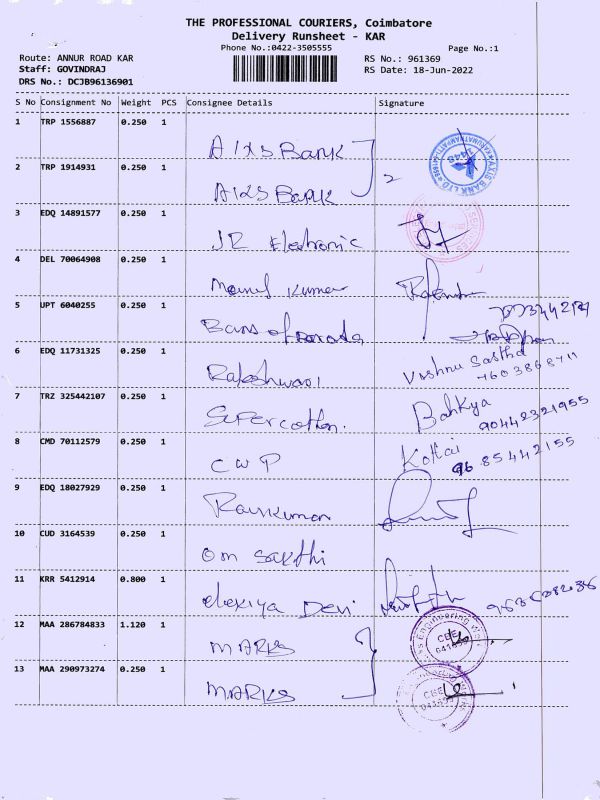 THE PROFESSIONAL COURIERS, Coimbatore
Delivery Runsheet - KAR
Phone No.:0422-3505555
Page No.:1
Route: ANNUR ROAD KAR
RS No.: 961369
Staff: GOVINDRAJ
RS Date: 18-Jun-2022
DRS No.: DCJB96136901
S No Consignment No Weight PCS Consignee Details Signature
1 TRP 1556887 0.250 1
AIXS BANK
2 TRP 1914931 0.250 1
2
AIXS BANK
AXIS BANK LTD
3 EDQ 14891577 0.250 1
JR Electronic
4 DEL 70064908 0.250 1
Kumar
5 UPT 6040255 0.250 1
6 EDQ 11731325 0.250 1
Vishnu Sastha
Rajeshwari
7 TRZ 325442107 0.250 1
Super cotton.
Bahkya
90442321955
8 CMD 70112579 0.250 1
CWP
Kottai
96 85442155
9 EDQ 18027929 0.250 1
Ramkumar
10 CUD 3164539 0.250 1
Om Sakthi
11 KRR 5412914 0.800 1
Devi
12 MAA 286784833 1.120 1
MARKS
Engineering
CBE
13 MAA 290973274 0.250 1
MARKS
CBE